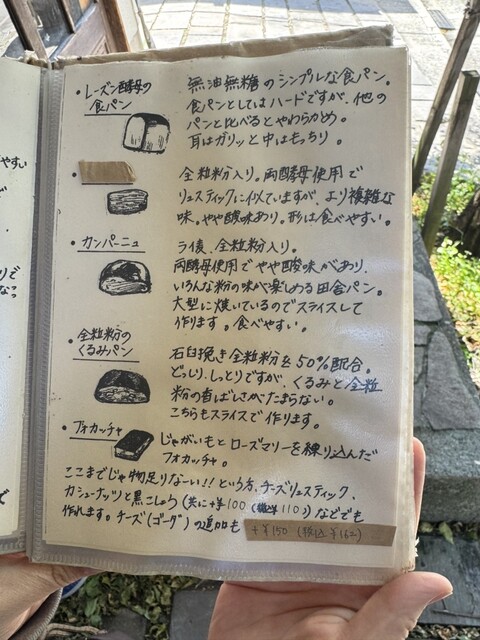 ・レーズン酵母の
食パン
無油無糖のシンプルな食パン。
食パンとしてはハードですが、他の
パンと比べるとやわらかめ。
耳はガリッと中はもっちり。
・
全粒粉入り。両酵母使用で
リュスティックに似ていますが、より複雑な
味。やや酸味あり。形は食べやすい。
・カンパーニュ
ライ麦、全粒粉入り。
両酵母使用でやや酸味があり、
いろんな粉の味が楽しめる田舎パン。
大型に焼いているのでスライスして
作ります。食べやすい。
・全粒粉の
くるみパン
石臼挽き全粒粉を50%配合。
どっしり、しっとりですが、くるみと全粒
粉の香ばしさがたまらない。
こちらもスライスで作ります。
・フォカッチャ
じゃがいもとローズマリーを練り込んだ
フォカッチャ。
ここまでじゃ物足りなーい!!という方、チーズリュスティック、
カシューナッツと黒こしょう(共に+¥100(税込¥110))などでも
作れます。チーズ(ゴーダ)の追加も +¥150(税込¥162)